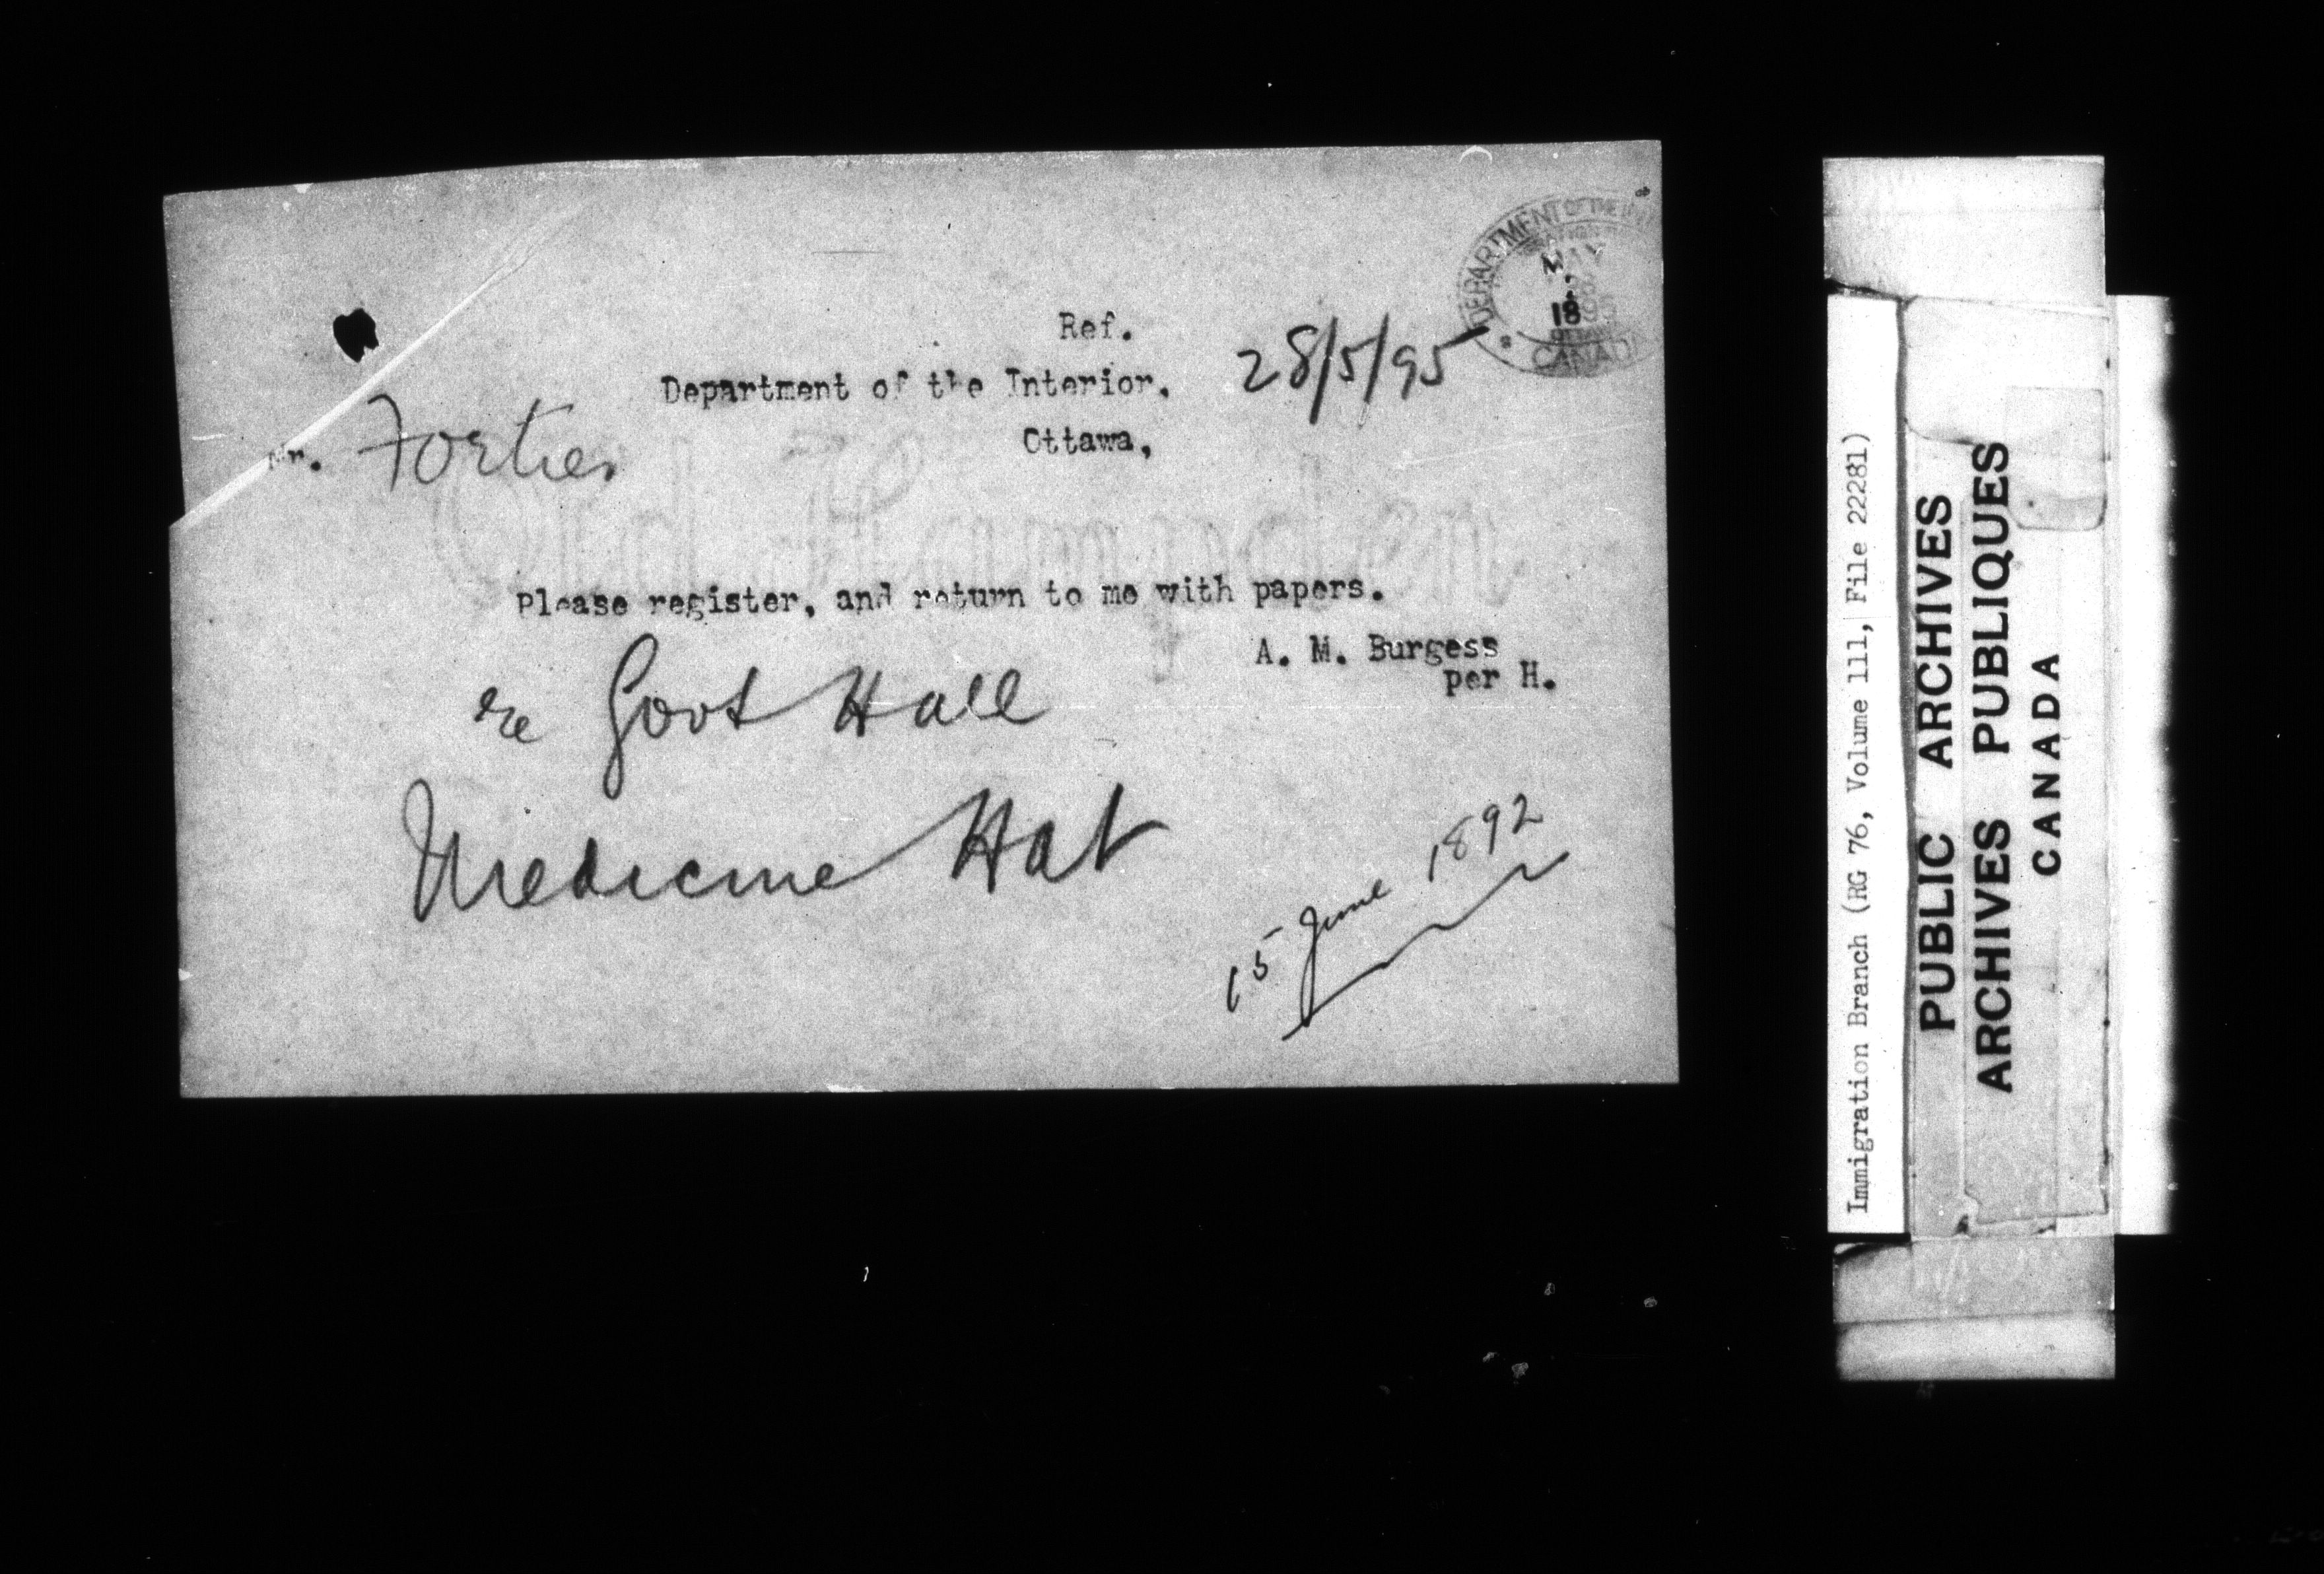 DEPARTMENT OF THE
MAY
1895
OTTAWA
CANADA
Ref.
Department of the Interior. 28/5/95
Ottawa,
Mr. Fortier
Old Hampden
Please register, and return to me with papers.
A. M. Burgess
per H.
re Govt Hall
Medicine Hat
15 June 1892
Immigration Branch (RG 76, Volume 111, File 22281)
PUBLIC ARCHIVES
ARCHIVES PUBLIQUES
CANADA